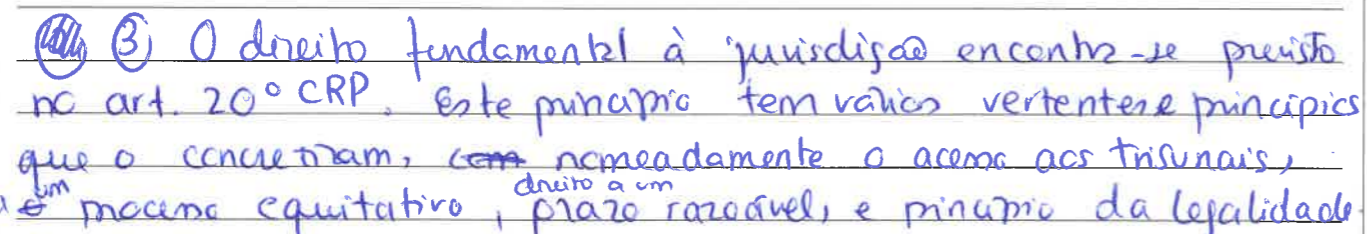 ③ O direito fundamental à jurisdição encontra-se previsto
no art. 20º CRP. Este princípio tem vários vertentes e princípios
que o concretizam, nomeadamente o acesso aos tribunais,
a um processo equitativo, direito a um prazo razoável, e princípio da legalidade.